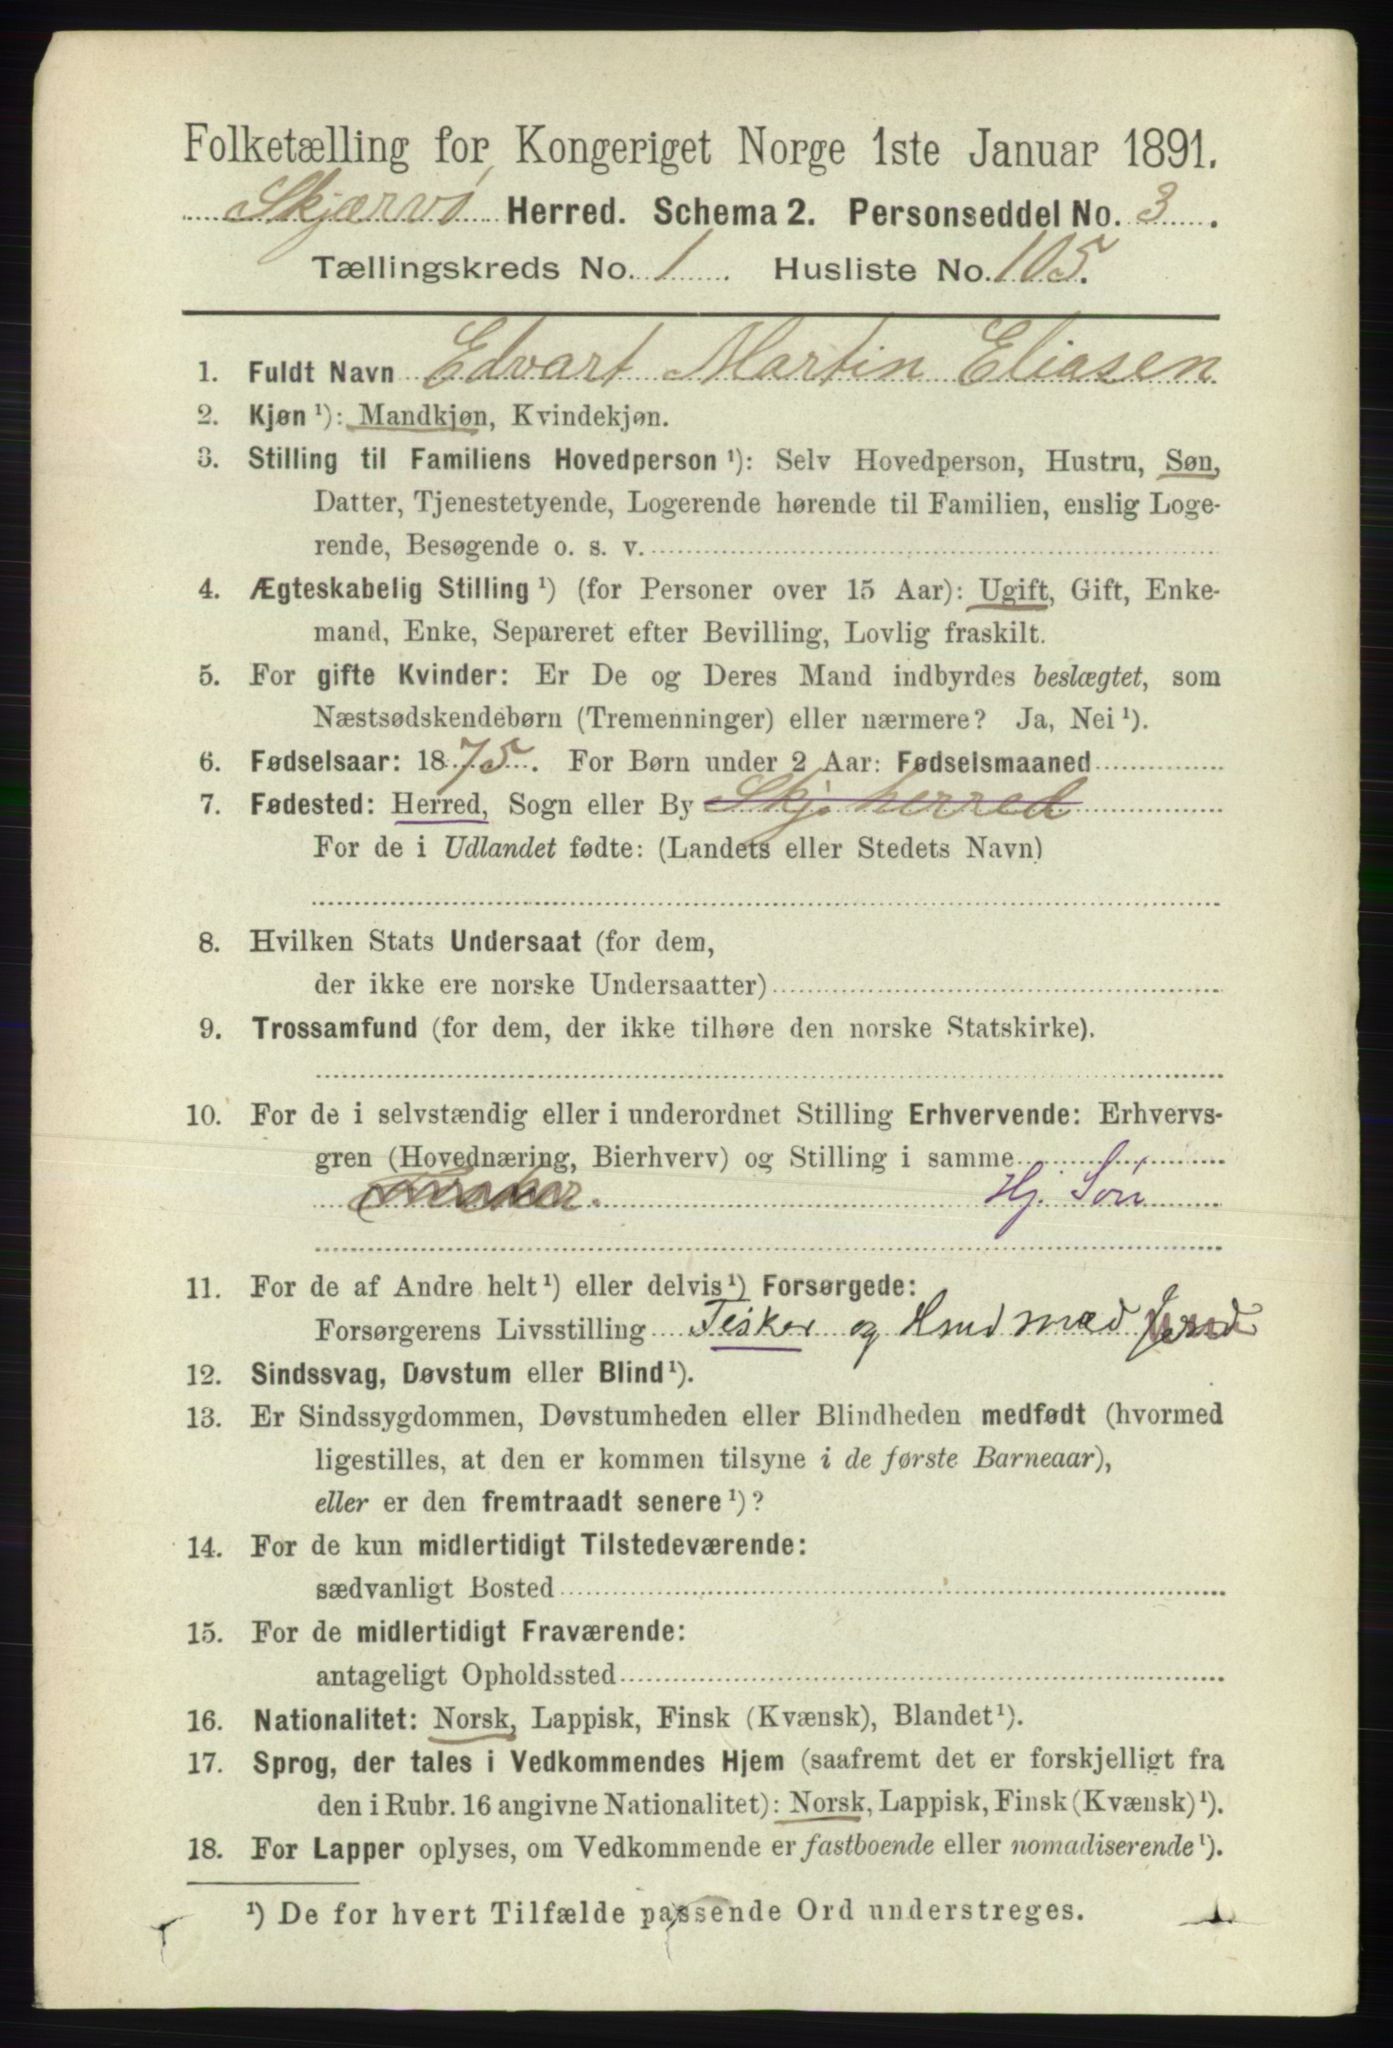 Folketælling for Kongeriget Norge 1ste Januar 1891.
Skjærvø Herred. Schema 2. Personseddel No. 3.
Tællingskreds No. 1. Husliste No. 105.
1. Fuldt Navn Edvart Martin Eliasen
2. Kjøn ¹): Mandkjøn, Kvindekjøn.
3. Stilling til Familiens Hovedperson ¹): Selv Hovedperson, Hustru, Søn,
Datter, Tjenestetyende, Logerende hørende til Familien, enslig Loge-
rende, Besøgende o. s. v.
4. Ægteskabelig Stilling ¹) (for Personer over 15 Aar): Ugift, Gift, Enke-
mand, Enke, Separeret efter Bevilling, Lovlig fraskilt.
5. For gifte Kvinder: Er De og Deres Mand indbyrdes beslægtet, som
Næstsødskendebørn (Tremenninger) eller nærmere? Ja, Nei ¹).
6. Fødselsaar: 1875. For Børn under 2 Aar: Fødselsmaaned
7. Fødested: Herred, Sogn eller By Skj. herred
For de i Udlandet fødte: (Landets eller Stedets Navn)
8. Hvilken Stats Undersaat (for dem,
der ikke ere norske Undersaatter)
9. Trossamfund (for dem, der ikke tilhøre den norske Statskirke).
10. For de i selvstændig eller i underordnet Stilling Erhvervende: Erhvervs-
gren (Hovednæring, Bierhverv) og Stilling i samme
Hj. Søn
11. For de af Andre helt ¹) eller delvis ¹) Forsørgede:
Forsørgerens Livsstilling Fisker og
12. Sindssvag, Døvstum eller Blind ¹).
13. Er Sindssygdommen, Døvstumheden eller Blindheden medfødt (hvormed
ligestilles, at den er kommen tilsyne i de første Barneaar),
eller er den fremtraadt senere ¹)?
14. For de kun midlertidigt Tilstedeværende:
sædvanligt Bosted
15. For de midlertidigt Fraværende:
antageligt Opholdssted
16. Nationalitet: Norsk, Lappisk, Finsk (Kvænsk), Blandet ¹).
17. Sprog, der tales i Vedkommendes Hjem (saafremt det er forskjelligt fra
den i Rubr. 16 angivne Nationalitet): Norsk, Lappisk, Finsk (Kvænsk) ¹).
18. For Lapper oplyses, om Vedkommende er fastboende eller nomadiserende ¹).
¹) De for hvert Tilfælde passende Ord understreges.